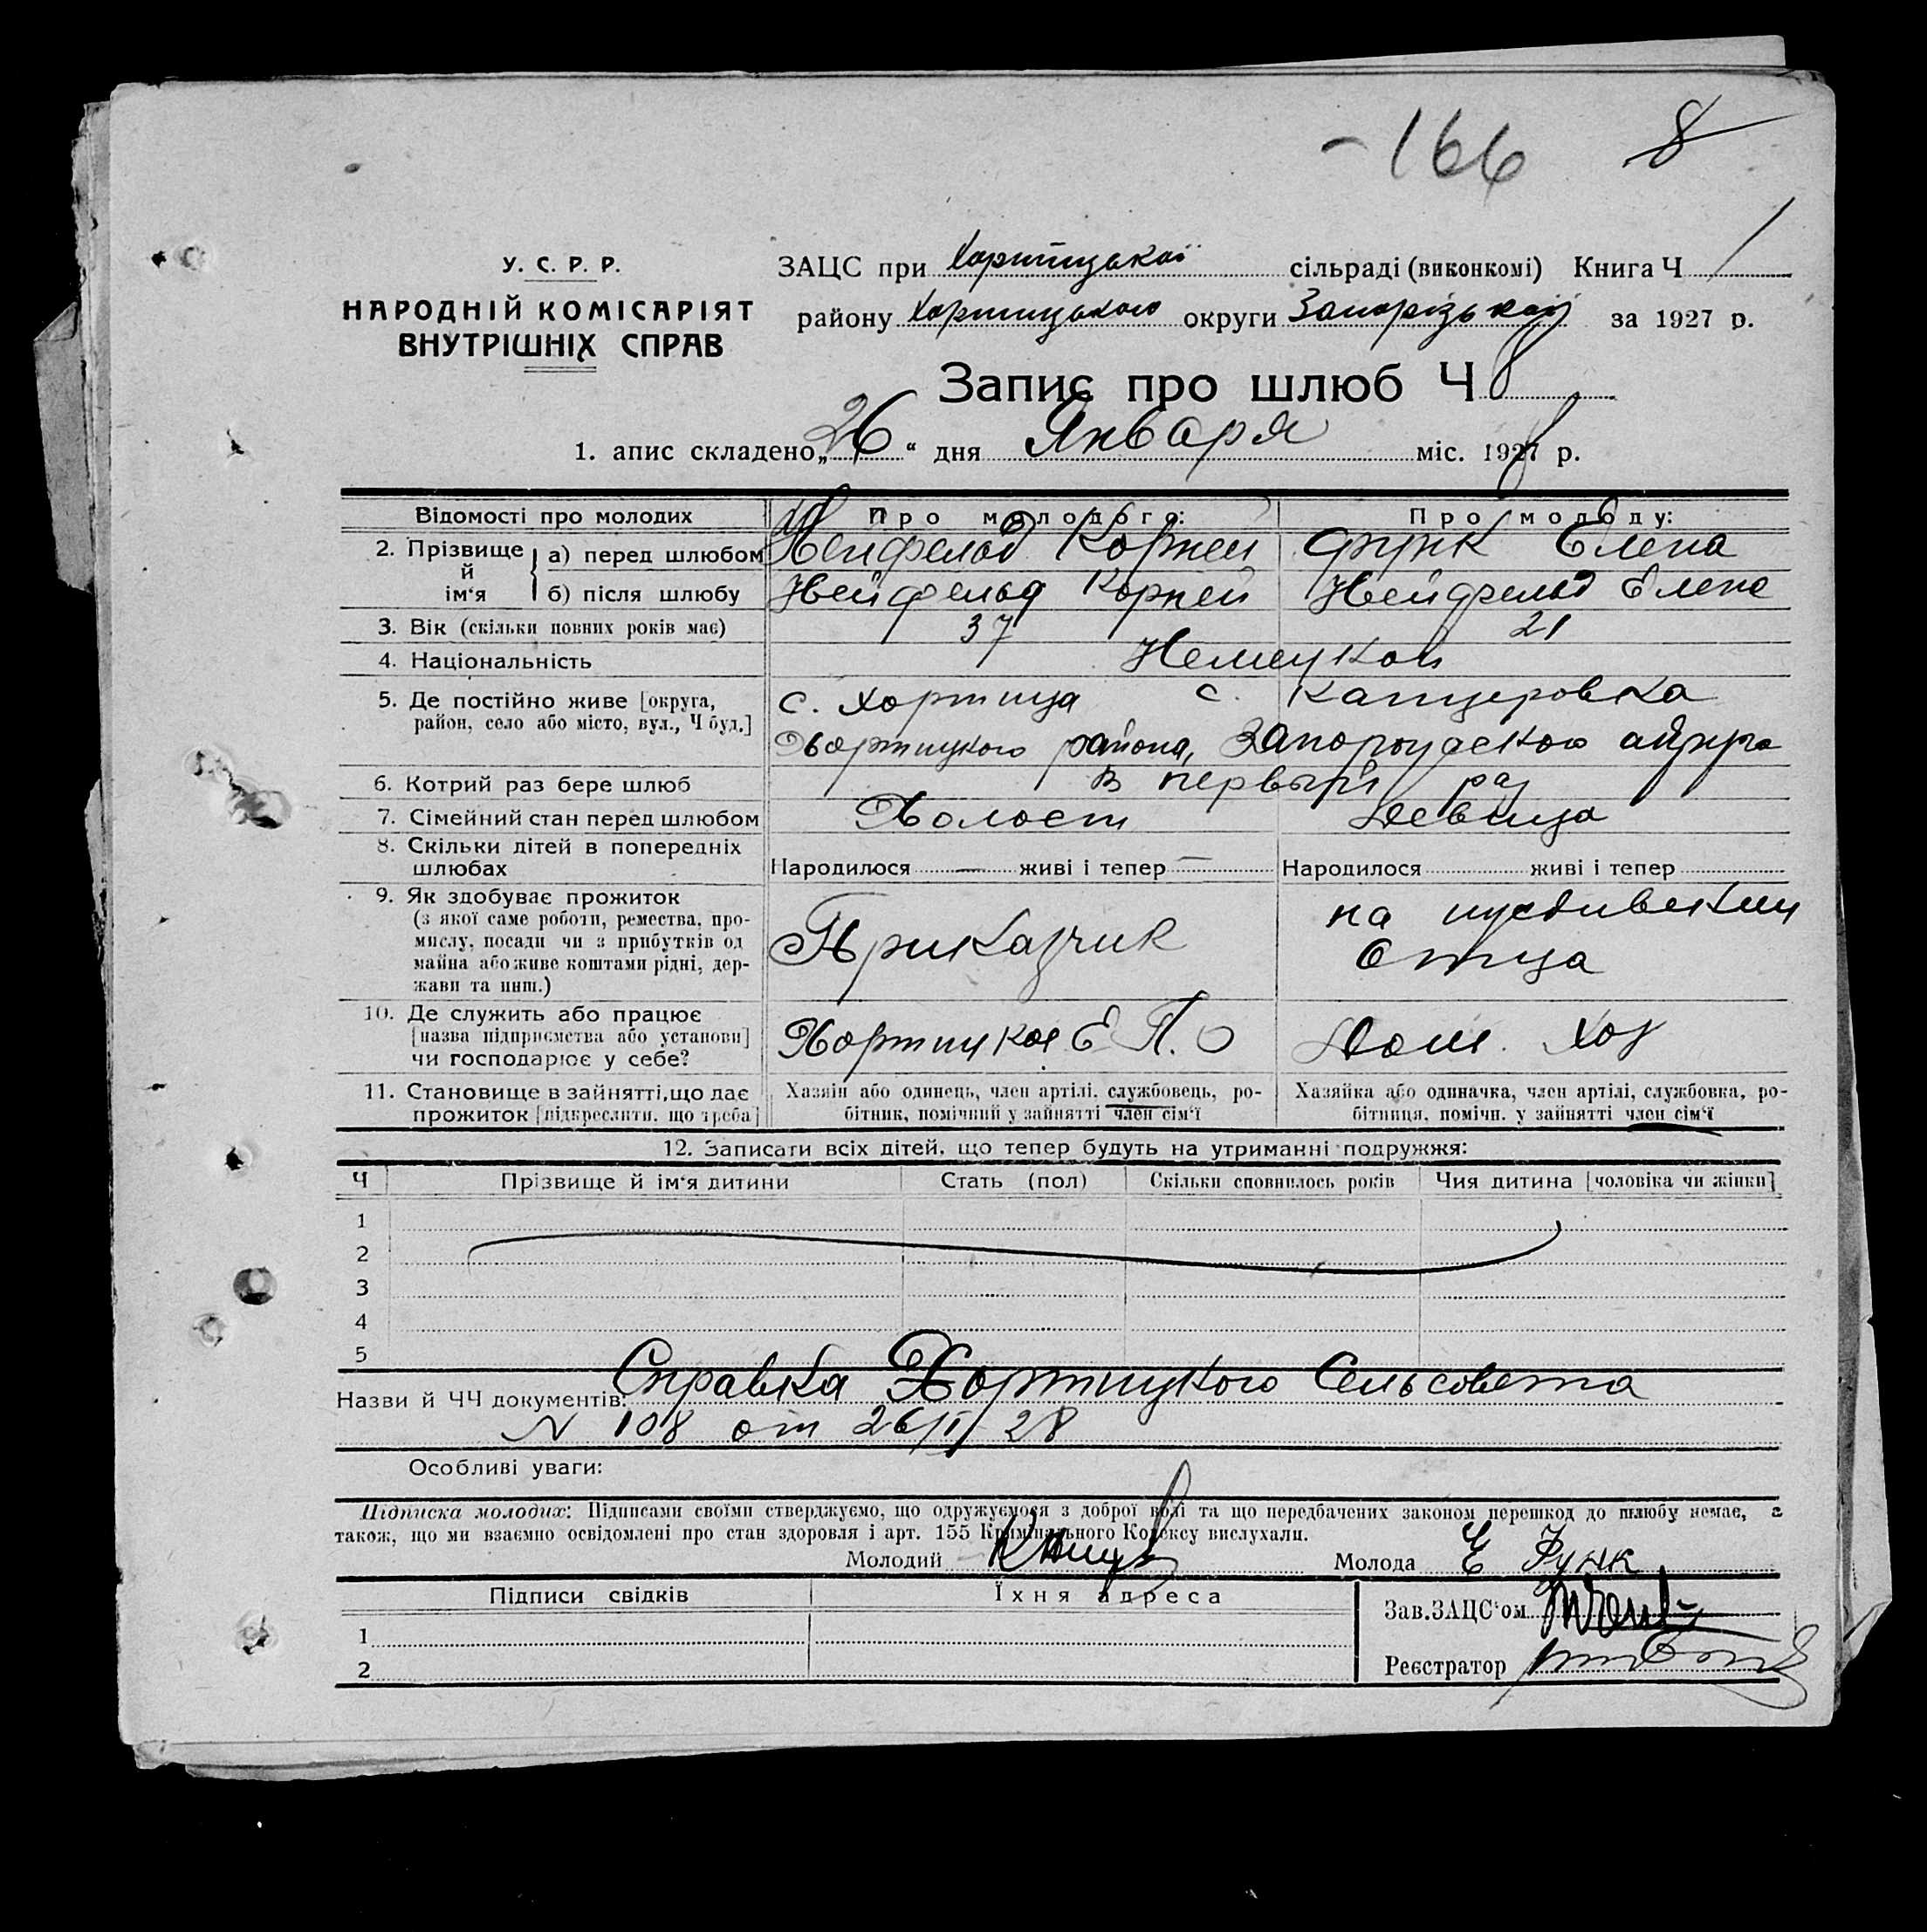 -166 8
У. С. Р. Р.
НАРОДНІЙ КОМІСАРІЯТ
ВНУТРІШНІХ СПРАВ
ЗАЦС при Хортицької сільраді (виконкомі) Книга Ч 1
району Хортицького округи Запорізької за 1927 р.
Запис про шлюб Ч 8
1. апис складено „26“ дня Января міс. 1928 р.
Відомості про молодих Про молодого: Про молоду:
2. Прізвище й ім‘я а) перед шлюбом Нейфельд Корней Функ Елена
б) після шлюбу Нейфельд Корней Нейфельд Елена
3. Вік (скільки повних років має) 37 21
4. Національність Немецкой
5. Де постійно живе [округа, с. Хортица с. Канцеровка
район, село або місто, вул., Ч буд.] Хортицкого района, Запорожского
6. Котрий раз бере шлюб в первый раз
7. Сімейний стан перед шлюбом Холост Девица
8. Скільки дітей в попередніх
шлюбах Народилося — живі і тепер — Народилося живі і тепер
9. Як здобуває прожиток на иждивении
(з якої саме роботи, ремества, про-
мислу, посади чи з прибутків од Приказчик Отца
майна або живе коштами рідні, дер-
жави та инш.)
10. Де служить або працює
[назва підприємства або установи] Хортицкое Е П. О Дом. Хоз
чи господарює у себе?
11. Становище в зайнятті, що дає Хазяїн або одинець, член артілі, службовець, ро- Хазяйка або одиначка, член артілі, службовка, ро-
прожиток [підкреслити, що треба] бітник, помічний у зайнятті член сім‘ї бітниця, помічн. у зайнятті член сім‘ї
12. Записати всіх дітей, що тепер будуть на утриманні подружжя:
Ч Прізвище й ім‘я дитини Стать (пол) Скільки сповнилось років Чия дитина [чоловіка чи жінки]
1
2
3
4
5
Назви й ЧЧ документів: Справка Хортицкого Сельсовета
N 108 от 26/I 28
Особливі уваги:
Підписка молодих: Підписами своїми стверджуємо, що одружуємося з доброї волі та що передбачених законом перешкод до шлюбу немає, а
також, що ми взаємно освідомлені про стан здоровля і арт. 155 Кримінального Кодексу вислухали.
Молодий Молода Е Функ
Підписи свідків Їхня адреса Зав. ЗАЦС‘ом
1
2 Реєстратор